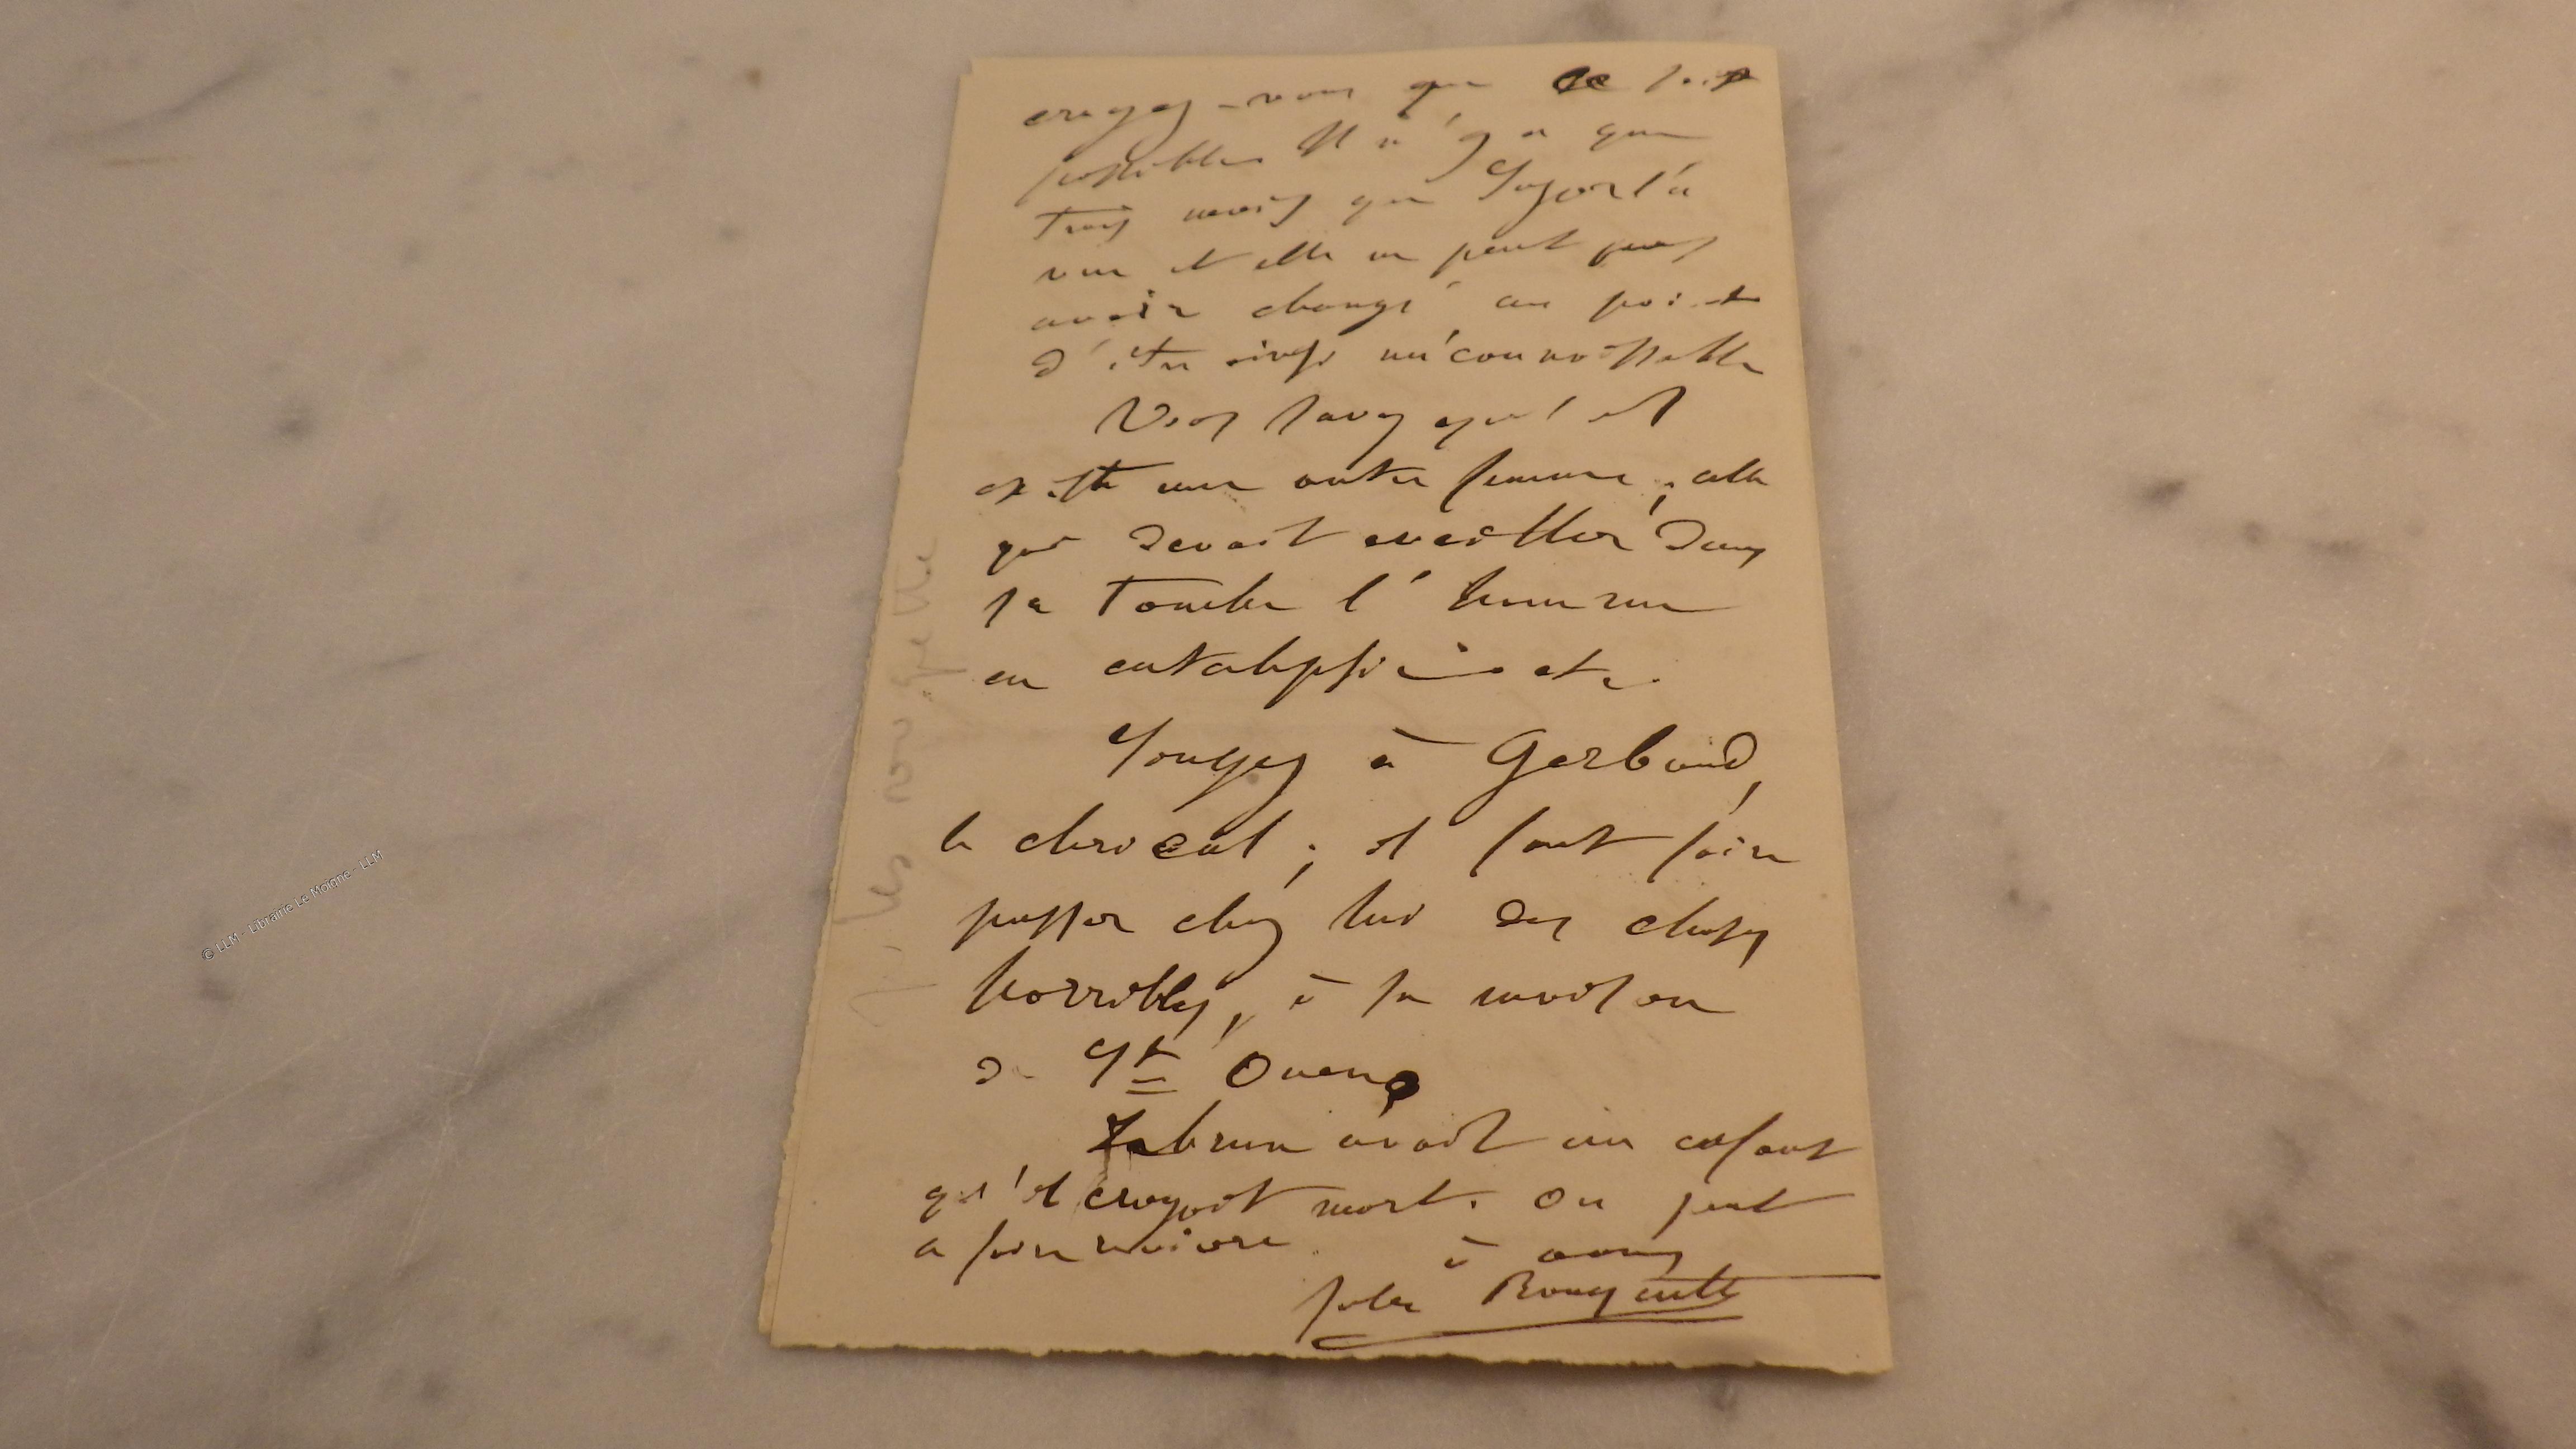 croyez-vous que ce soit
possible. Il n'y a que
trois mois que l'a
vue et elle ne peut pas
avoir changé au point
d'être ainsi méconnaissable
Vous savez qu'il
existe une autre femme, celle
qui devait eveiller dans
sa tombe l'homme
en catalepsie etc.
Songez à Gerbaud,
le clerical ; il faut faire
passer chez lui des choses
horribles, à sa maison
de St Ouen.
Lebrun avait un enfant
qu'il croyait mort. On peut
le faire revivre.
à vous
Jules Rouquette
© LLM - Librairie Le Moigne - LLM